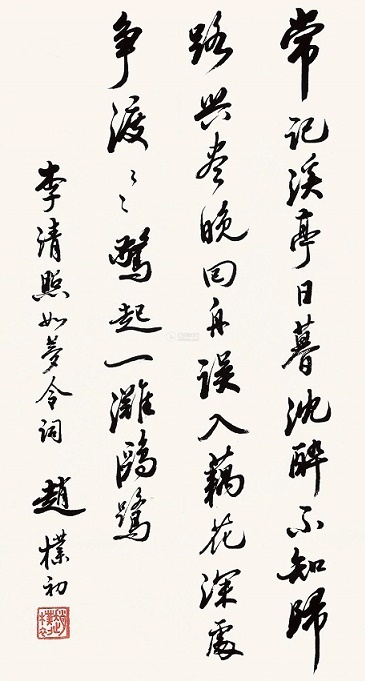 常记溪亭日暮沈醉不知歸
路興尽晚回舟误入藕花深處
争渡〻驚起一灘鷗鷺
李清照如夢令词 趙樸初
趙樸初